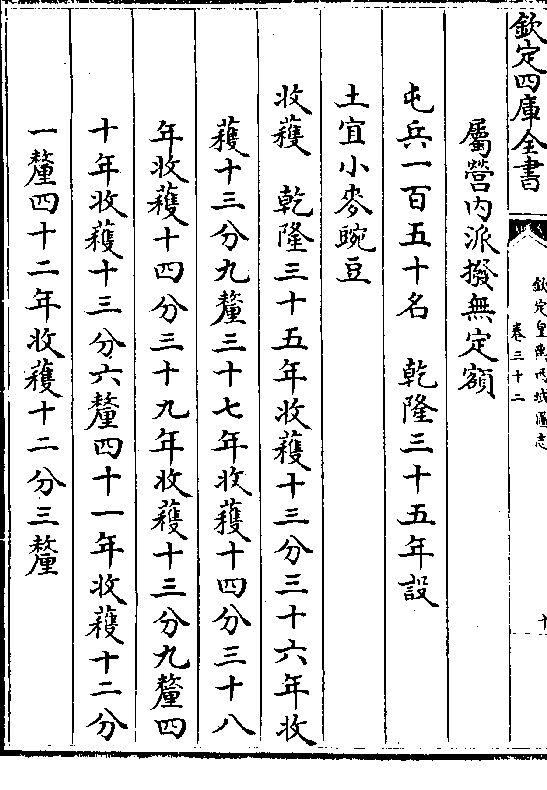 欽定四庫全書
欽定皇輿西域圖志
卷三十二
十
屬營内派撥無定額
屯兵一百五十名　乾隆三十五年設
土宜小麥豌豆
收穫　乾隆三十五年收穫十三分三十六年收
穫十三分九釐三十七年收穫十四分三十八
年收穫十四分三十九年收穫十三分九釐四
十年收穫十三分六釐四十一年收穫十二分
一釐四十二年收穫十二分三釐